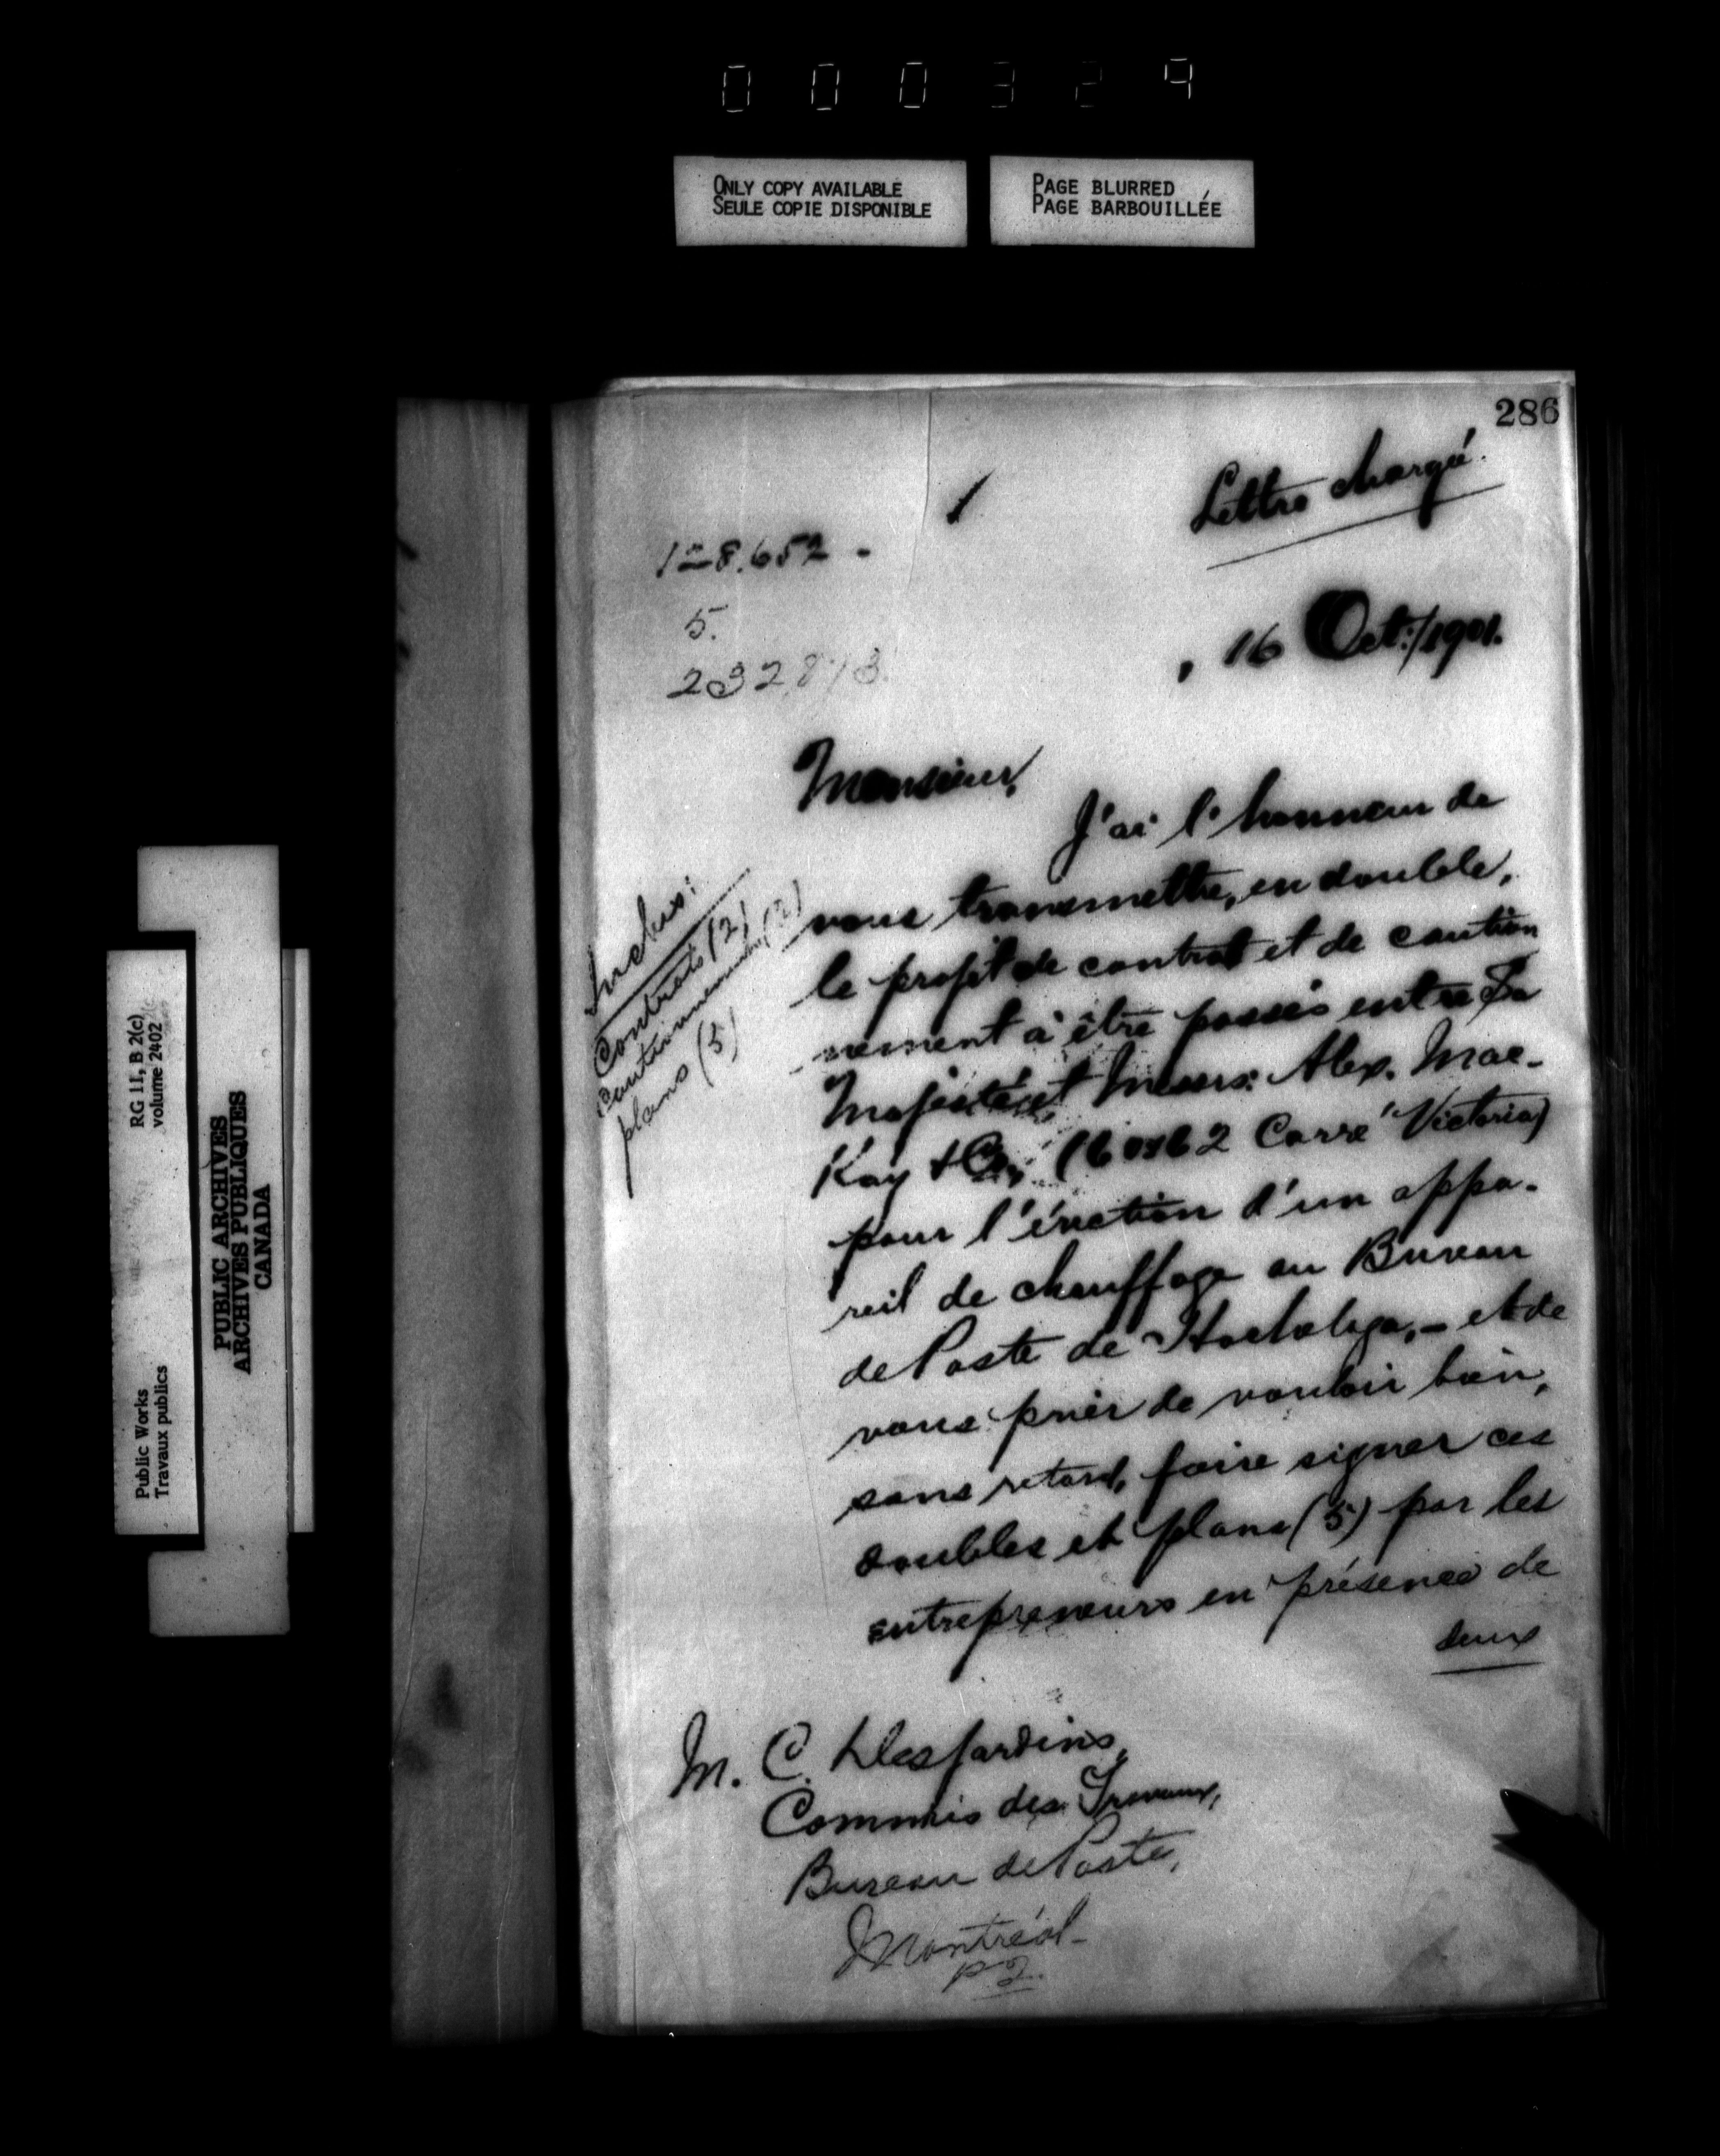 000329
ONLY COPY AVAILABLE
SEULE COPIE DISPONIBLE
PAGE BLURRED
PAGE BARBOUILLÉE
RG 11, B 2(c)
volume 2402
Public Works
Travaux publics
PUBLIC ARCHIVES
ARCHIVES PUBLIQUES
CANADA
286
Lettre chargée.
128.652 -
5.
2328
16 Oct:/1901.
Monsieur,
J'ai l'honneur de
vous transmettre, en double,
le projet de contrat et de caution
-nement à être passés entre Sa
Majesté et Messrs: Alex. Mac-
Kay & Co, (60 & 62 Carré Victoria)
pour l'érection d'un appa-
reil de chauffage au Bureau
de Poste de Hochelaga, - et de
vous prier de vouloir bien,
sans retard, faire signer ces
doubles et plans (5) par les
entrepreneurs en présence de
deux
Inclus:
Contrats (2)
Cautionnements (2)
plans (5)
M. C. Desjardins,
Commis des Travaux,
Bureau de Poste,
Montréal -
P2.